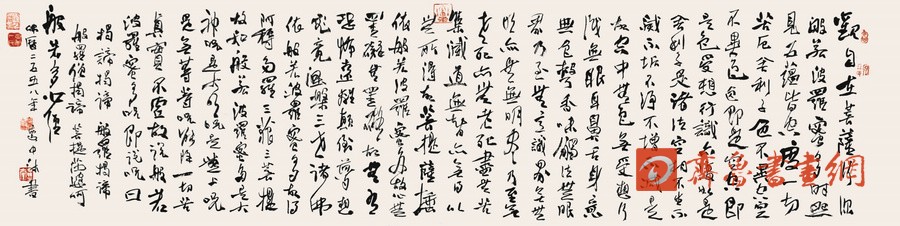 觀自在菩薩行深
般若波羅蜜多時照
見五蘊皆空度一切
苦厄舍利子色不異空
不異色色即是空空即
是色受想行識亦復如是
舍利子是諸法空相不生不
滅不垢不淨不增不減是
故空中無色無受想行
識無眼耳鼻舌身意
無色聲香味觸法無眼
界乃至無意識界無無
明亦無無明盡乃至無
老死亦無老死盡無苦
集滅道無智亦無得以
無所得故菩提薩埵
依般若波羅蜜多故心無
罣礙無罣礙故無有
恐怖遠離顛倒夢想
究竟涅槃三世諸佛
依般若波羅蜜多故得
阿耨多羅三藐三菩提
故知般若波羅蜜多是大
神咒是大明咒是無上咒
是無等等咒能除一切苦
真實不虛故說般若
波羅蜜多咒即說咒曰
揭諦揭諦 般羅揭諦
般羅僧揭諦 菩提薩婆訶
般若多心經
佛曆二五五八年 書
齊魯書畫網